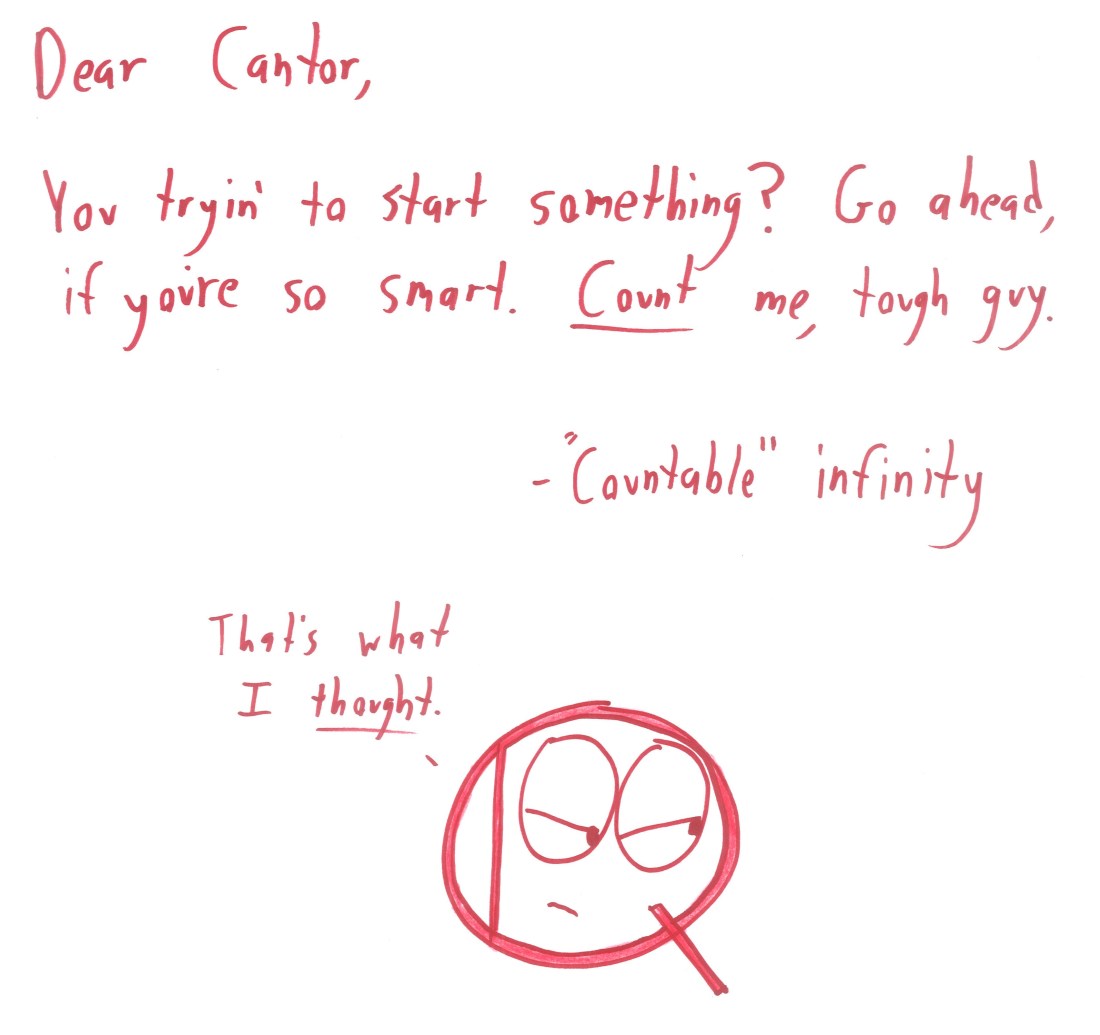 Dear Cantor,
You tryin' to start something? Go ahead,
if you're so smart. Count me, tough guy.
- "Countable" infinity
That's what
I thought.